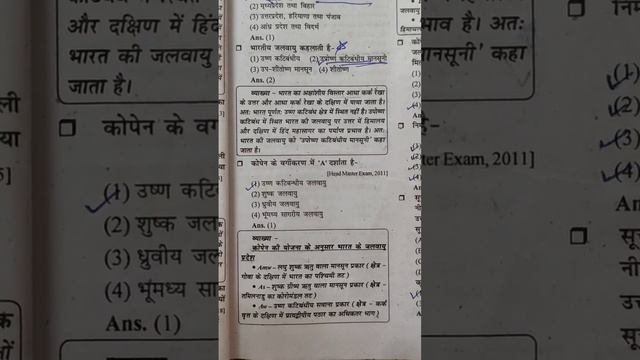 (2) मध्यप्रदेश तथा बिहार
(3) उत्तरप्रदेश, हरियाणा तथा पंजाब
(4) आंध्र प्रदेश तथा विदर्भ
Ans. (1)
भारतीय जलवायु कहलाती है-
(1) उष्ण कटिबंधीय (2) उपोष्ण कटिबंधीय मानसूनी
(3) उप-शीतोष्ण मानसून (4) शीतोष्ण
Ans. (2)
व्याख्या – भारत का अक्षांशीय विस्तार आधा कर्क रेखा
के उत्तर और आधा कर्क रेखा के दक्षिण में पाया जाता है।
अतः भारत पूर्णतः उष्ण कटिबंध क्षेत्र में स्थित नहीं है। उपोष्ण
कटिबंध में स्थित भारत की जलवायु पर उत्तर में हिमालय
और दक्षिण में हिंद महासागर का पर्याप्त प्रभाव है। अतः
भारत की जलवायु को 'उपोष्ण कटिबंधीय मानसूनी' कहा
जाता है।
कोपेन के वर्गीकरण में 'A' दर्शाता है-
[Head Master Exam, 2011]
(1) उष्ण कटिबन्धीय जलवायु
(2) शुष्क जलवायु
(3) ध्रुवीय जलवायु
(4) भूंमध्य सागरीय जलवायु
Ans. (1)
व्याख्या –
कोपेन की योजना के अनुसार भारत के जलवायु
प्रदेश
• Amw– लघु शुष्क ऋतु वाला मानसून प्रकार ( क्षेत्र -
गोवा के दक्षिण में भारत का पश्चिमी तट)
• As – शुष्क ग्रीष्म ऋतु वाला मानसून प्रकार ( क्षेत्र –
तमिलनाडु का कोरोमंडल तट)
• Aw – उष्ण कटिबंधीय सवाना प्रकार ( क्षेत्र – कर्क
वृत्त के दक्षिण में प्रायद्वीपीय पठार का अधिकतर भाग)
और दक्षिण में हिंद
भारत की जलवायु
जाता है।
कोपेन के वर्गी
(1) उष्ण कटि
(2) शुष्क जल
(3) ध्रुवीय जल
(4) भूंमध्य साग
Ans. (1)
भाव है। अतः
मानसूनी' कहा
है-
ter Exam, 2011]
(1)
(2)
(3)
(4)
An